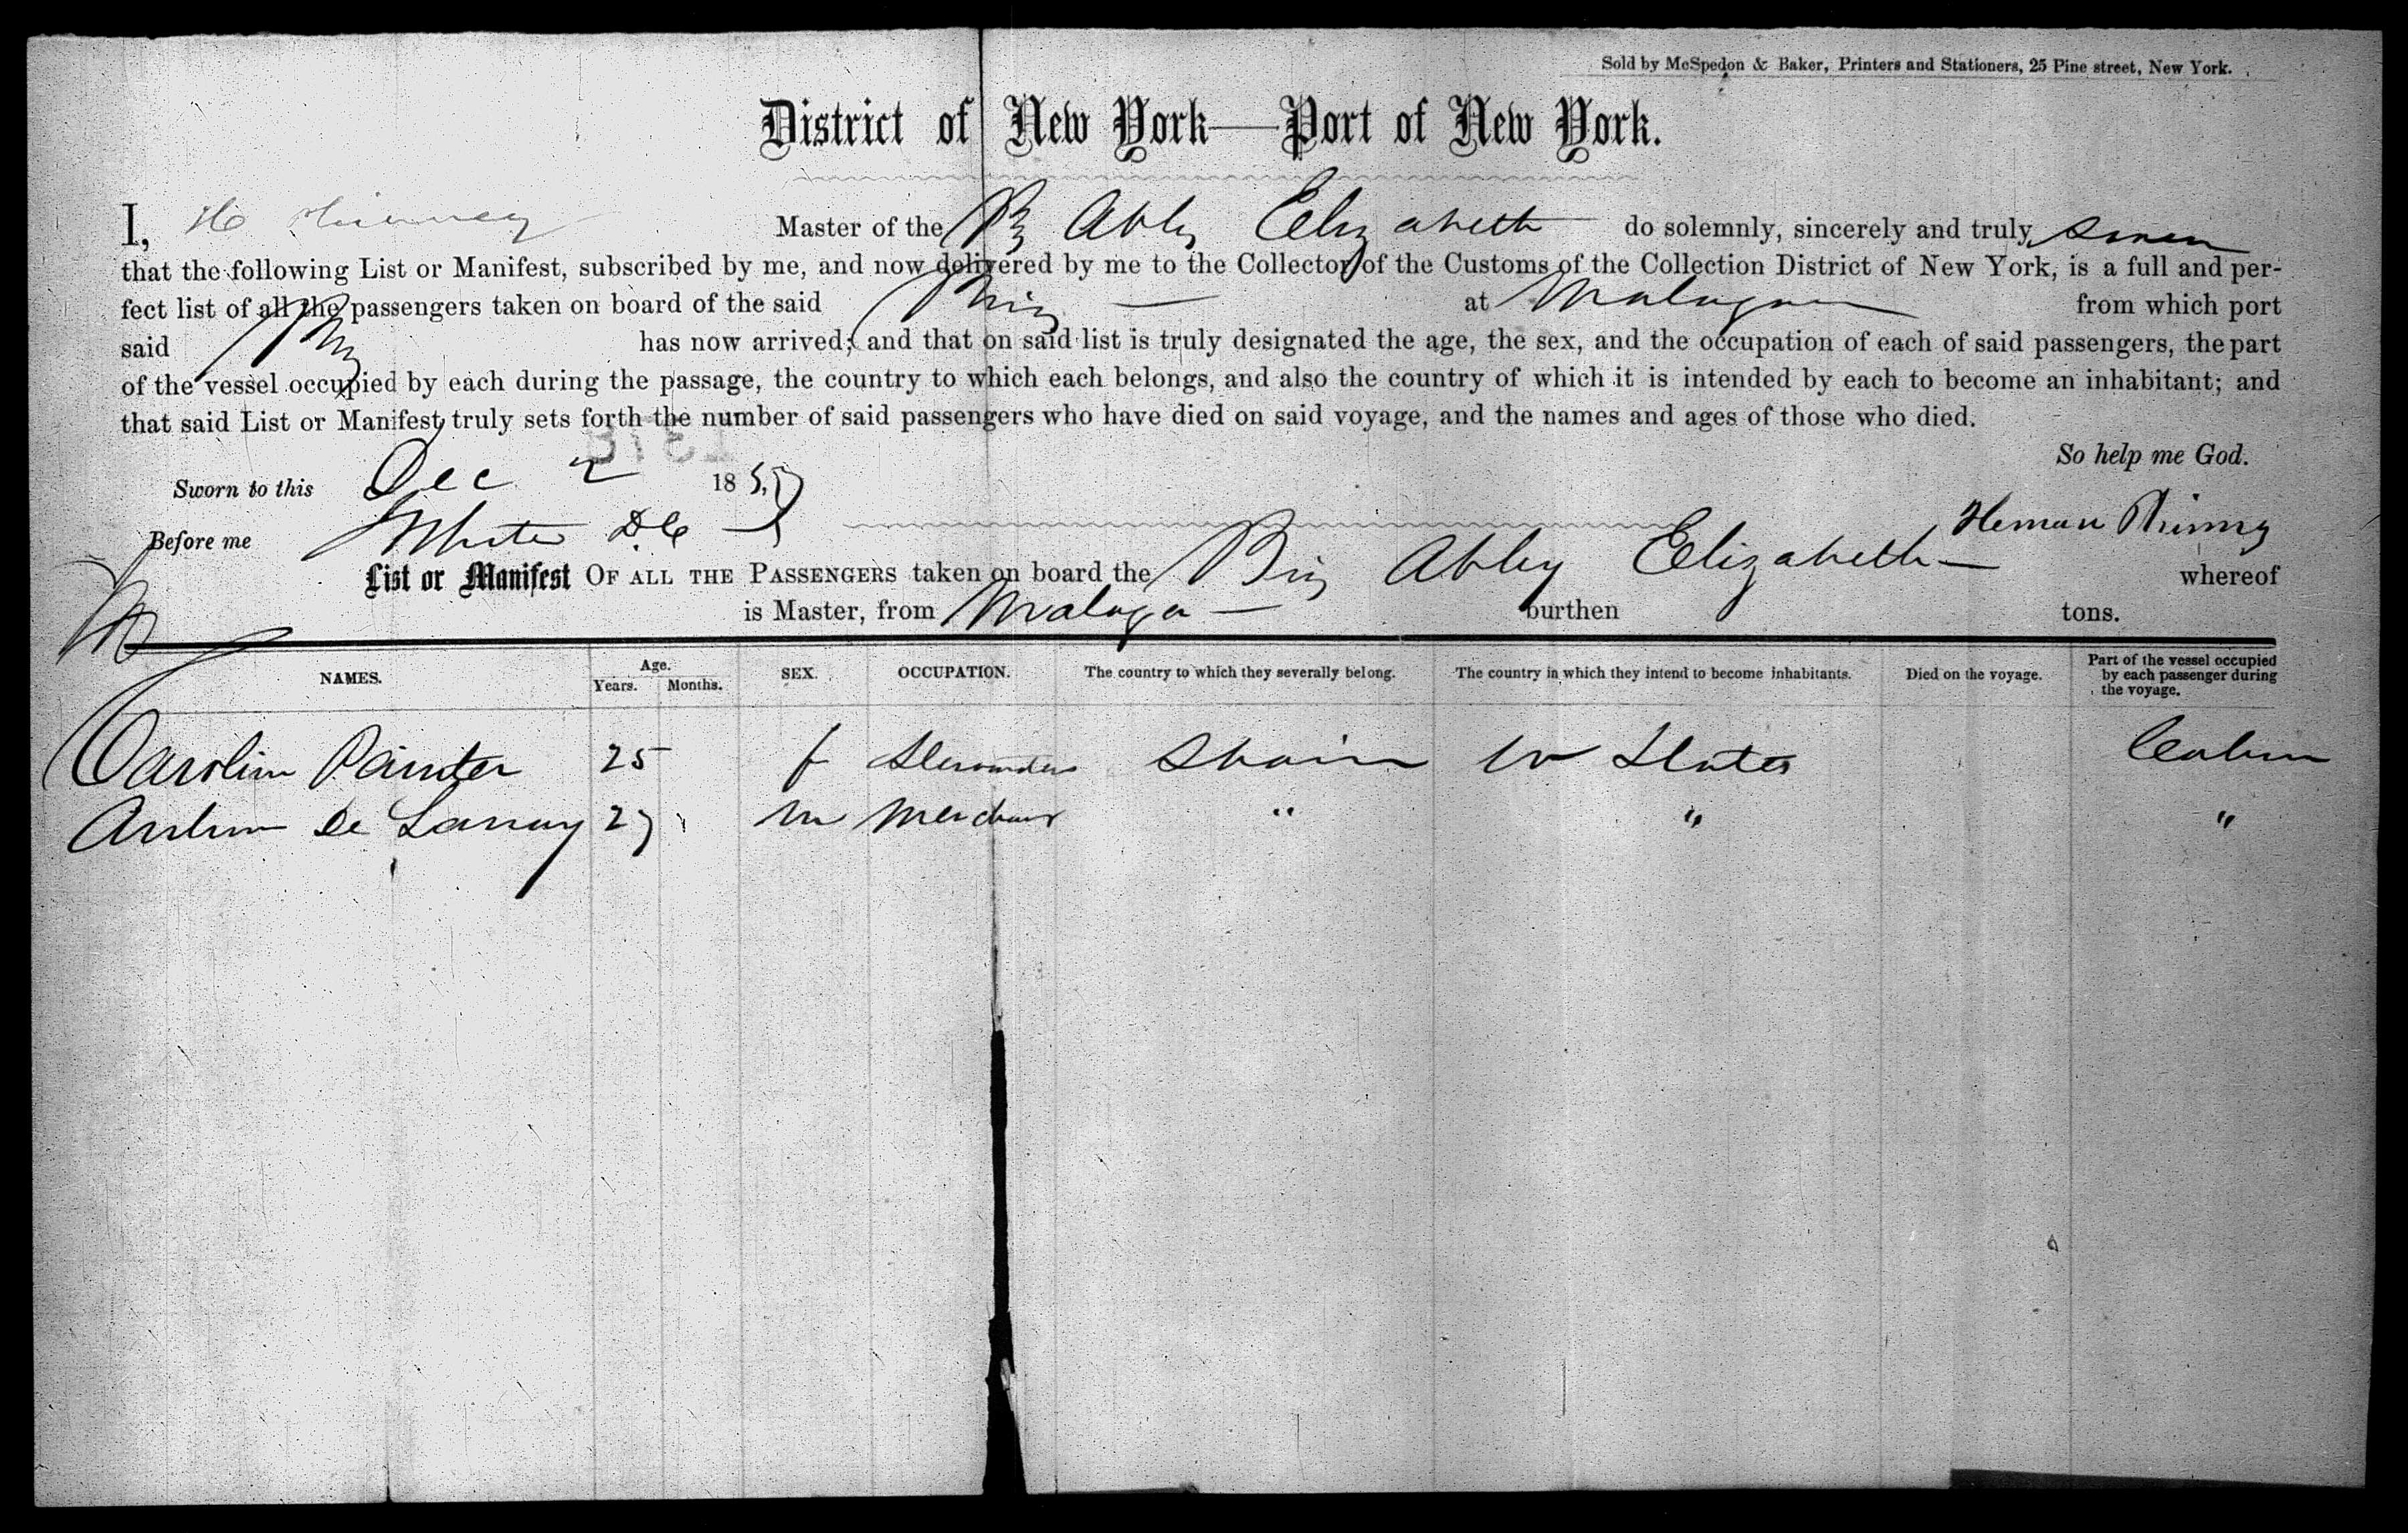 Sold by McSpedon & Baker, Printers and Stationers, 25 Pine street, New York.
District of New York—Port of New York.
I, H Master of the Bg Abby Elizabeth do solemnly, sincerely and truly swear
that the following List or Manifest, subscribed by me, and now delivered by me to the Collector of the Customs of the Collection District of New York, is a full and per-
fect list of all the passengers taken on board of the said Brig at Malaga from which port
said Brig has now arrived; and that on said list is truly designated the age, the sex, and the occupation of each of said passengers, the part
of the vessel occupied by each during the passage, the country to which each belongs, and also the country of which it is intended by each to become an inhabitant; and
that said List or Manifest truly sets forth the number of said passengers who have died on said voyage, and the names and ages of those who died.
So help me God.
Sworn to this Dec 2 1857
Before me Heman
List or Manifest OF ALL THE PASSENGERS taken on board the Brig Abby Elizabeth whereof
is Master, from Malaga burthen tons.
NAMES. Age. Years. Months. SEX. OCCUPATION. The country to which they severally belong. The country in which they intend to become inhabitants. Died on the voyage. Part of the vessel occupied by each passenger during the voyage.
Carolin Painter 25 f Spain U States Cabin
De 27 m Merchant " " "